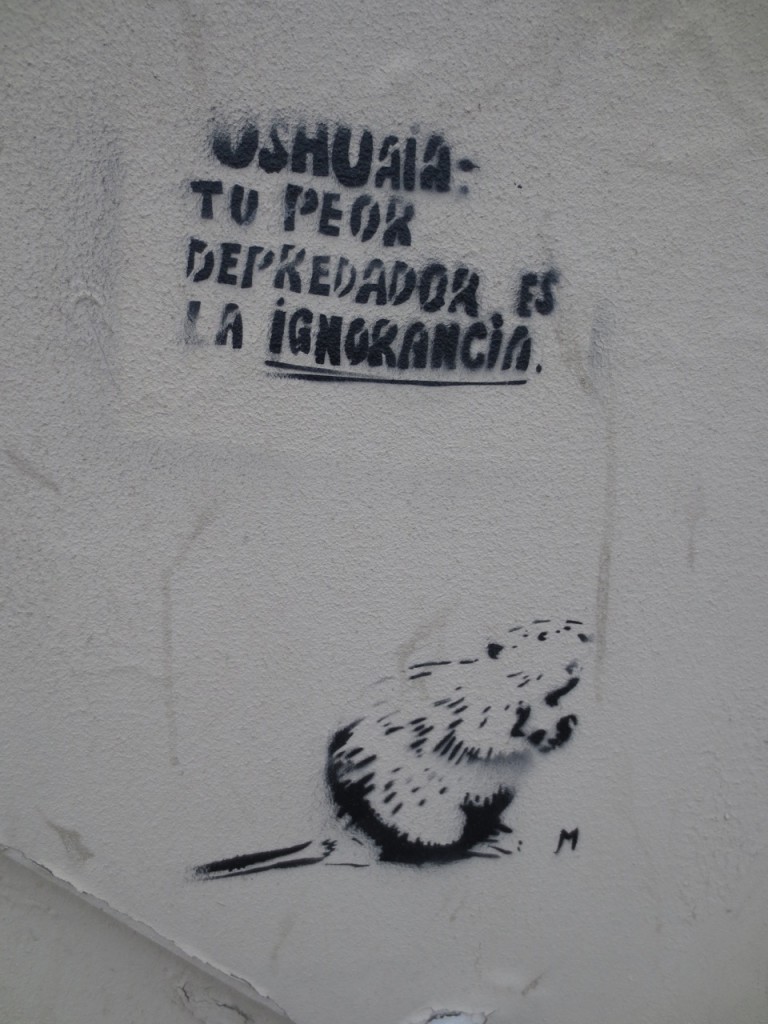 USHUAiA:
TU PEOR
DEPREDADOR, ES
LA iGNORANCiA.
M